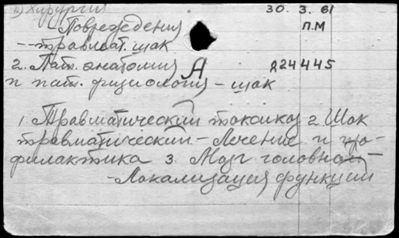 1) Хирургия 30. 3. 61
Повреждения П.М
-- травмат. шок
2. Пат. анатомия А 224445
и пат. физиология - шок
1. Травматический токсикоз 2. Шок
травматический - Лечение и про-
филактика 3. Мозг головной -
- Локализация функций